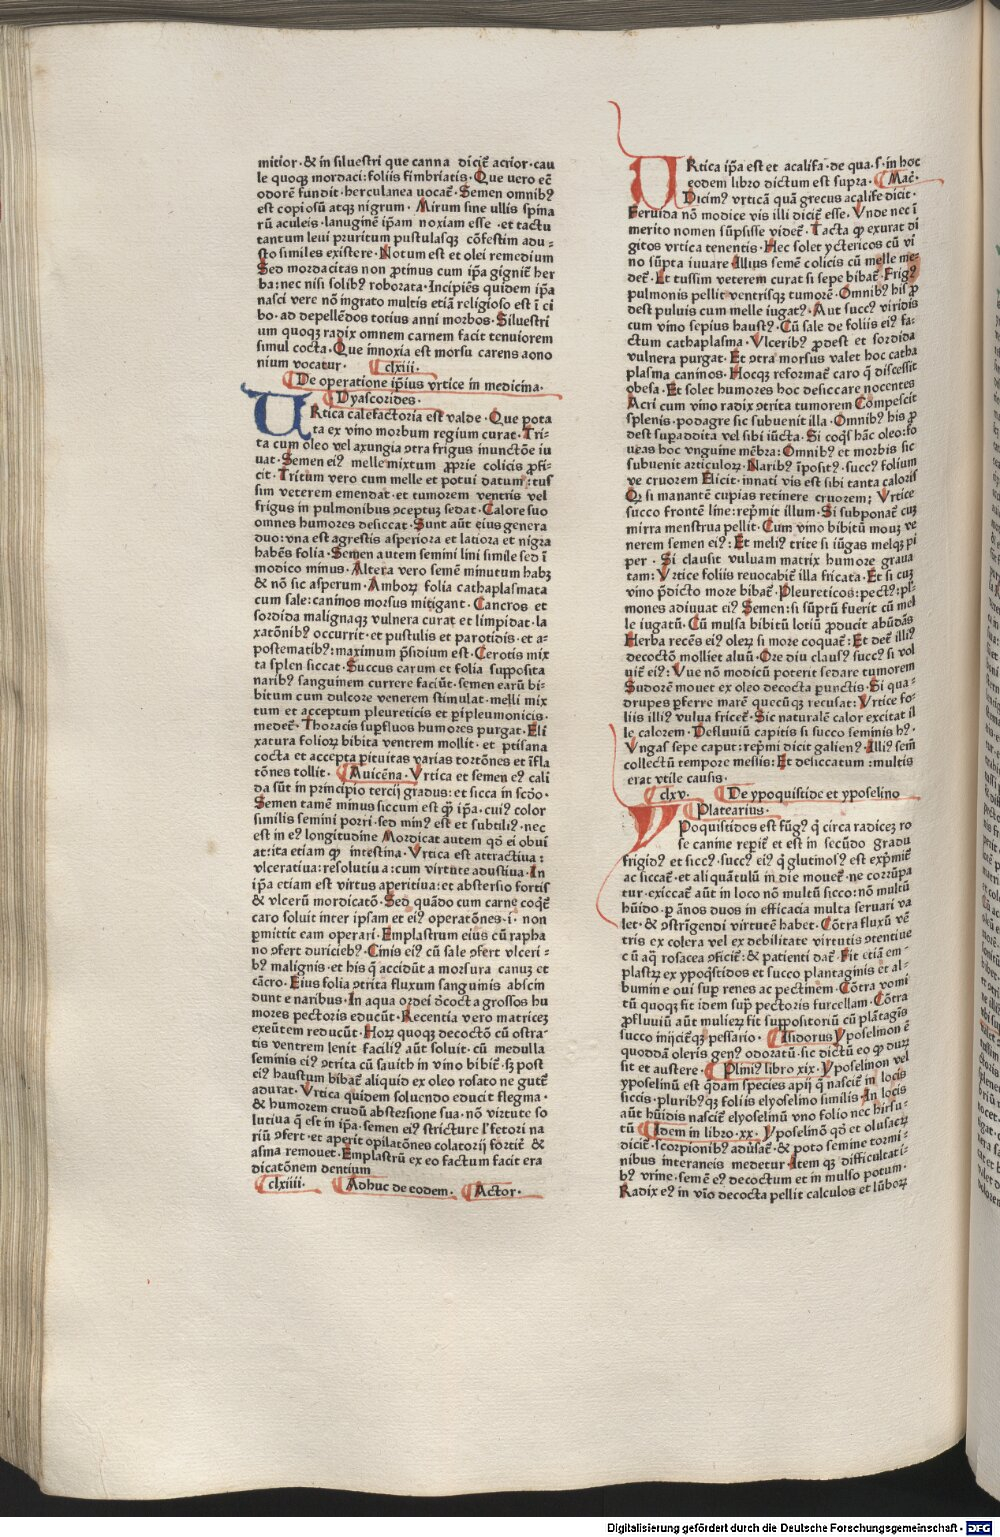 mitior·& in siluestri que canna dicit̃ acrior·cau
le quoqʒ mordaci:foliis fimbriatis·Que uero eẽ
odorẽ fundit·herculanea uocat̃·Semen omnibꝰ
est copiosũ atqʒ nigrum·Mirum sine ullis spina
rũ aculeis·lanuginẽ ip̃am noxiam esse·et tactu
tantum leui pruritum pustulasqʒ cõfestim adu⸗
sto similes existere·Notum est et olei remedium
Sed mordacitas non ꝓtinus cum ip̃a gignit̃ her
ba:nec nisi solibꝰ roborata·Incipiẽs quidem ip̃a
nasci vere nõ ingrato multis etiã religioso est ĩ ci
bo·ad depellẽdos totius anni morbos·Siluestri
um quoqʒ radix omnem carnem facit teniuorem
simul cocta·Que innoxia est morsu carens aono
nium vocatur· clxiii·
De operatione ip̃ius vrtice in medicina·
Dyascorides·
URtica calefactoria est valde·Que pota
ta ex vino morbum regium curat·Tri⸗
ta cum oleo vel axungia ꝯtra frigus inunctõe iu
uat·Semen eiꝰ melle mixtum ꝓprie colicis ꝓfi⸗
cit·Tritum vero cum melle et potui datum:tus
sim veterem emendat·et tumorem ventris vel
frigus in pulmonibus ꝯceptuʒ sedat·Calore suo
omnes humores desiccat·Sunt aũt eius genera
duo:vna est agrestis asperiora et latiora et nigra
habẽs folia·Semen autem semini lini simile sed ĩ
modico minus·Altera vero semẽ minutum habʒ
& nõ sic asperum·Amborꝝ folia cathaplasmata
cum sale:caninos morsus mitigant·Cancros et
sordida malignaqʒ vulnera curat et limpidat·la
xatõnibꝰ occurrit·et pustulis et parotidis·et a⸗
postematibꝰ:maximum p̃sidium est·Cerotis mix
ta splen siccat·Succus earum et folia supposita
naribꝰ sanguinem currere faciũt·semen earũ bi⸗
bitum cum dulcore venerem stimulat·melli mix
tum et acceptum pleureticis et ꝑipleumonicis·
medet̃·Thoracis suꝑfluos humores purgat·Eli
xatura foliorꝝ bibita ventrem mollit·et ptisana
cocta et accepta pituitas varias tortõnes et ĩfla
tõnes tollit· Auicẽna·Vrtica et semen eꝰ cali
da sũt in principio tercij gradus:et sicca in sc̃do·
Semen tamẽ minus siccum est qꝫ ip̃a·cuiꝰ color
similis semini porri·sed minꝰ est et subtiliꝰ·nec
est in eꝰ longitudine Mordicat autem qđ ei obui
at:ita etiam qꝫ intestina·Vrtica est attractiua:
vlceratiua:resolutiua:cum virtute adustiua·In
ip̃a etiam est virtus aperitiua:et abstersio fortis
& vlcerũ mordicatõ·Sed quãdo cum carne coqt̃
caro soluit inter ipsam et eiꝰ operatõnes·i·non
ꝑmittit eam operari·Emplastrum eius cũ rapha
no ꝯfert duriciebꝰ·Cinis eiꝰ cũ sale ꝯfert vlceri⸗
bꝰ malignis·et his q̃ accidũt a morsura canuʒ et
cãcro·Eius folia ꝯtrita fluxum sanguinis abscin
dunt e naribus·In aqua ordei dc̃octa grossos hu
mores pectoris educũt·Recentia vero matriceʒ
exeũtem reducũt·Horꝝ quoqʒ decoctõ cũ ostra⸗
tis ventrem lenit faciliꝰ aũt soluit·cũ medulla
seminis eiꝰ ꝯtrita cũ sauich in vino bibit̃·sʒ post
eiꝰ haustum bibat̃ aliquid ex oleo rosato ne gutt̃
adurat·Vrtica quidem soluendo educit flegma·
& humorem crudũ abstersione sua·nõ virtute so
lutiua q̃ est in ip̃a·semen eiꝰ stricture l'fetori na
riũ ꝯfert·et aperit opilatõnes colatorij fortit̃ &
asma remouet·Emplastrũ ex eo factum facit era
dicatõnem dentium
clxiiii· Adhuc de eodem· Actor·
URtica ip̃a est et acalifa·de qua·s·in hoc
eodem libro dictum est supra· Mac̃·
Dicimꝰ vrticã quã grecus acalife dicit·
Feruida nõ modice vis illi dicit̃ esse·Vnde nec ĩ
merito nomen sũpsisse videt̃·Tacta qꝫ exurat di
gitos vrtica tenentis·Hec solet yctericos cũ vi
no sũpta iuuare·Illius semẽ colicis cũ melle me⸗
det̃·Et tussim veterem curat si sepe bibat̃·Frigꝰ
pulmonis pellit ventrisqʒ tumorẽ·Omnibꝰ his ꝓ
dest puluis cum melle iugatꝰ·Aut succꝰ viridis
cum vino sepius haustꝰ·Cũ sale de foliis eiꝰ fa⸗
ctum cathaplasma·Vlceribꝰ ꝓdest et sordida
vulnera purgat·Et ꝯtra morsus valet hoc catha
plasma caninos·Hocqʒ reformat̃ caro q̃ discessit
obesa·Et solet humores hoc desiccare nocentes
Acri cum vino radix ꝯtrita tumorem Compescit
splenis·podagre sic subuenit illa·Omnibꝰ his ꝓ
dest supaddita vel sibi iũcta·Si coqʼs hãc oleo:fo
ueas hoc vnguine mẽbra:Omnibꝰ et morbis sic
subuenit articulorꝝ·Naribꝰ ĩpositꝰ·succꝰ folium
ve cruorem Elicit·innati vis est sibi tanta caloris
Qꝫ si manantẽ cupias retinere cruorem;Vrtice
succo frontẽ line:rep̃mit illum·Si subponat̃ cuʒ
mirra menstrua pellit·Cum vino bibitũ mouʒ ve
nerem semen eiꝰ:Et meliꝰ trite si iũgas melqʒ pi
per·Si clausit vuluam matrix humore graua
tam:Vrtice foliis reuocabit̃ illa fricata·Et si cuʒ
vino p̃dicto more bibat̃·Pleureticos:pectꝰ:pl'
mones adiuuat eiꝰ Semen:si sũptũ fuerit cũ mel
le iugatũ·Cũ mulsa bibitũ lotiũ ꝓducit abũdãs
Herba recẽs eiꝰ olerꝝ si more coquat̃:Et det̃ illiꝰ
decoctõ molliet aluũ·Ore diu clausꝰ succꝰ si vol
uit̃ eiꝰ:Vue nõ modicũ poterit sedare tumorem
Sudorẽ mouet ex oleo decocta ꝑunctis·Si qua⸗
drupes ꝑferre marẽ quecũqʒ recusat:Vrtice fo⸗
liis illiꝰ vulua fricet̃·Sic naturalẽ calor excitat il
le calorem·Defluuiũ capitis si succo seminis hꝰ·
Vngas sepe caput:rep̃mi dicit galienꝰ·Illiꝰ sem̃
collectũ tempore messis:Et desiccatum:multis
erat vtile causis·
clxv· De ypoquistide et yposelino
Platearius·
YPoquistidos est fũgꝰ q̃ circa radiceʒ ro
se canine reꝑit̃ et est in secũdo gradu
frigidꝰ et siccꝰ·succꝰ eiꝰ q̃ glutinosꝰ est exp̃mit̃
ac siccat̃·et aliquãtulũ in die mouet̃·ne corrũpa
tur·exiccat̃ aũt in loco nõ multũ sicco:nõ multũ
hũido·ꝑ ãnos duos in efficacia multa seruari va
let·& ꝯstrigendi virtutẽ habet·Cõtra fluxũ vẽ
tris ex colera vel ex debilitate virtutis ꝯtentiue
cũ aq̃ rosacea ꝯficit̃:& patienti dat̃·Fit etiã em⸗
plastꝝ ex ypoqʼstidos et succo plantaginis et al⸗
bumine oui sup renes ac pectinem·Cõtra vomi
tũ quoqʒ fit idem sup̃ pectoris furcellam·Cõtra
ꝓfluuiũ aũt mulierꝝ fit suppositoriũ cũ plãtagĩs
succo inijcit̃qʒ pessario· Isidorus Yposelinon ẽ
quoddã oleris genꝰ odoratũ·sic dictũ eo qꝫ durꝝ
sit et austere· Pliniꝰ libro xix·Yposelinon vel
yposelinũ est qdam species apij q̃ nascit̃ in locis
siccis·pluribꝰqʒ foliis elyoselino similis·In locis
aũt hũidis nascit̃ elyoselinũ vno folio nec hirsu⸗
tũ Idem in libro·xx·Yposelinõ qđ et olusatꝝ
dicit̃·scorpionibꝰ aduersat̃·& poto semine tormi⸗
nibus interaneis medetur·Item qʒ difficultati⸗
bꝰ vrine·semẽ eꝰ decoctum et in mulso potum·
Radix eꝰ in vĩo decocta pellit calculos et lũborꝝ
Digitalisierung gefördert durch die Deutsche Forschungsgemeinschaft - DFG